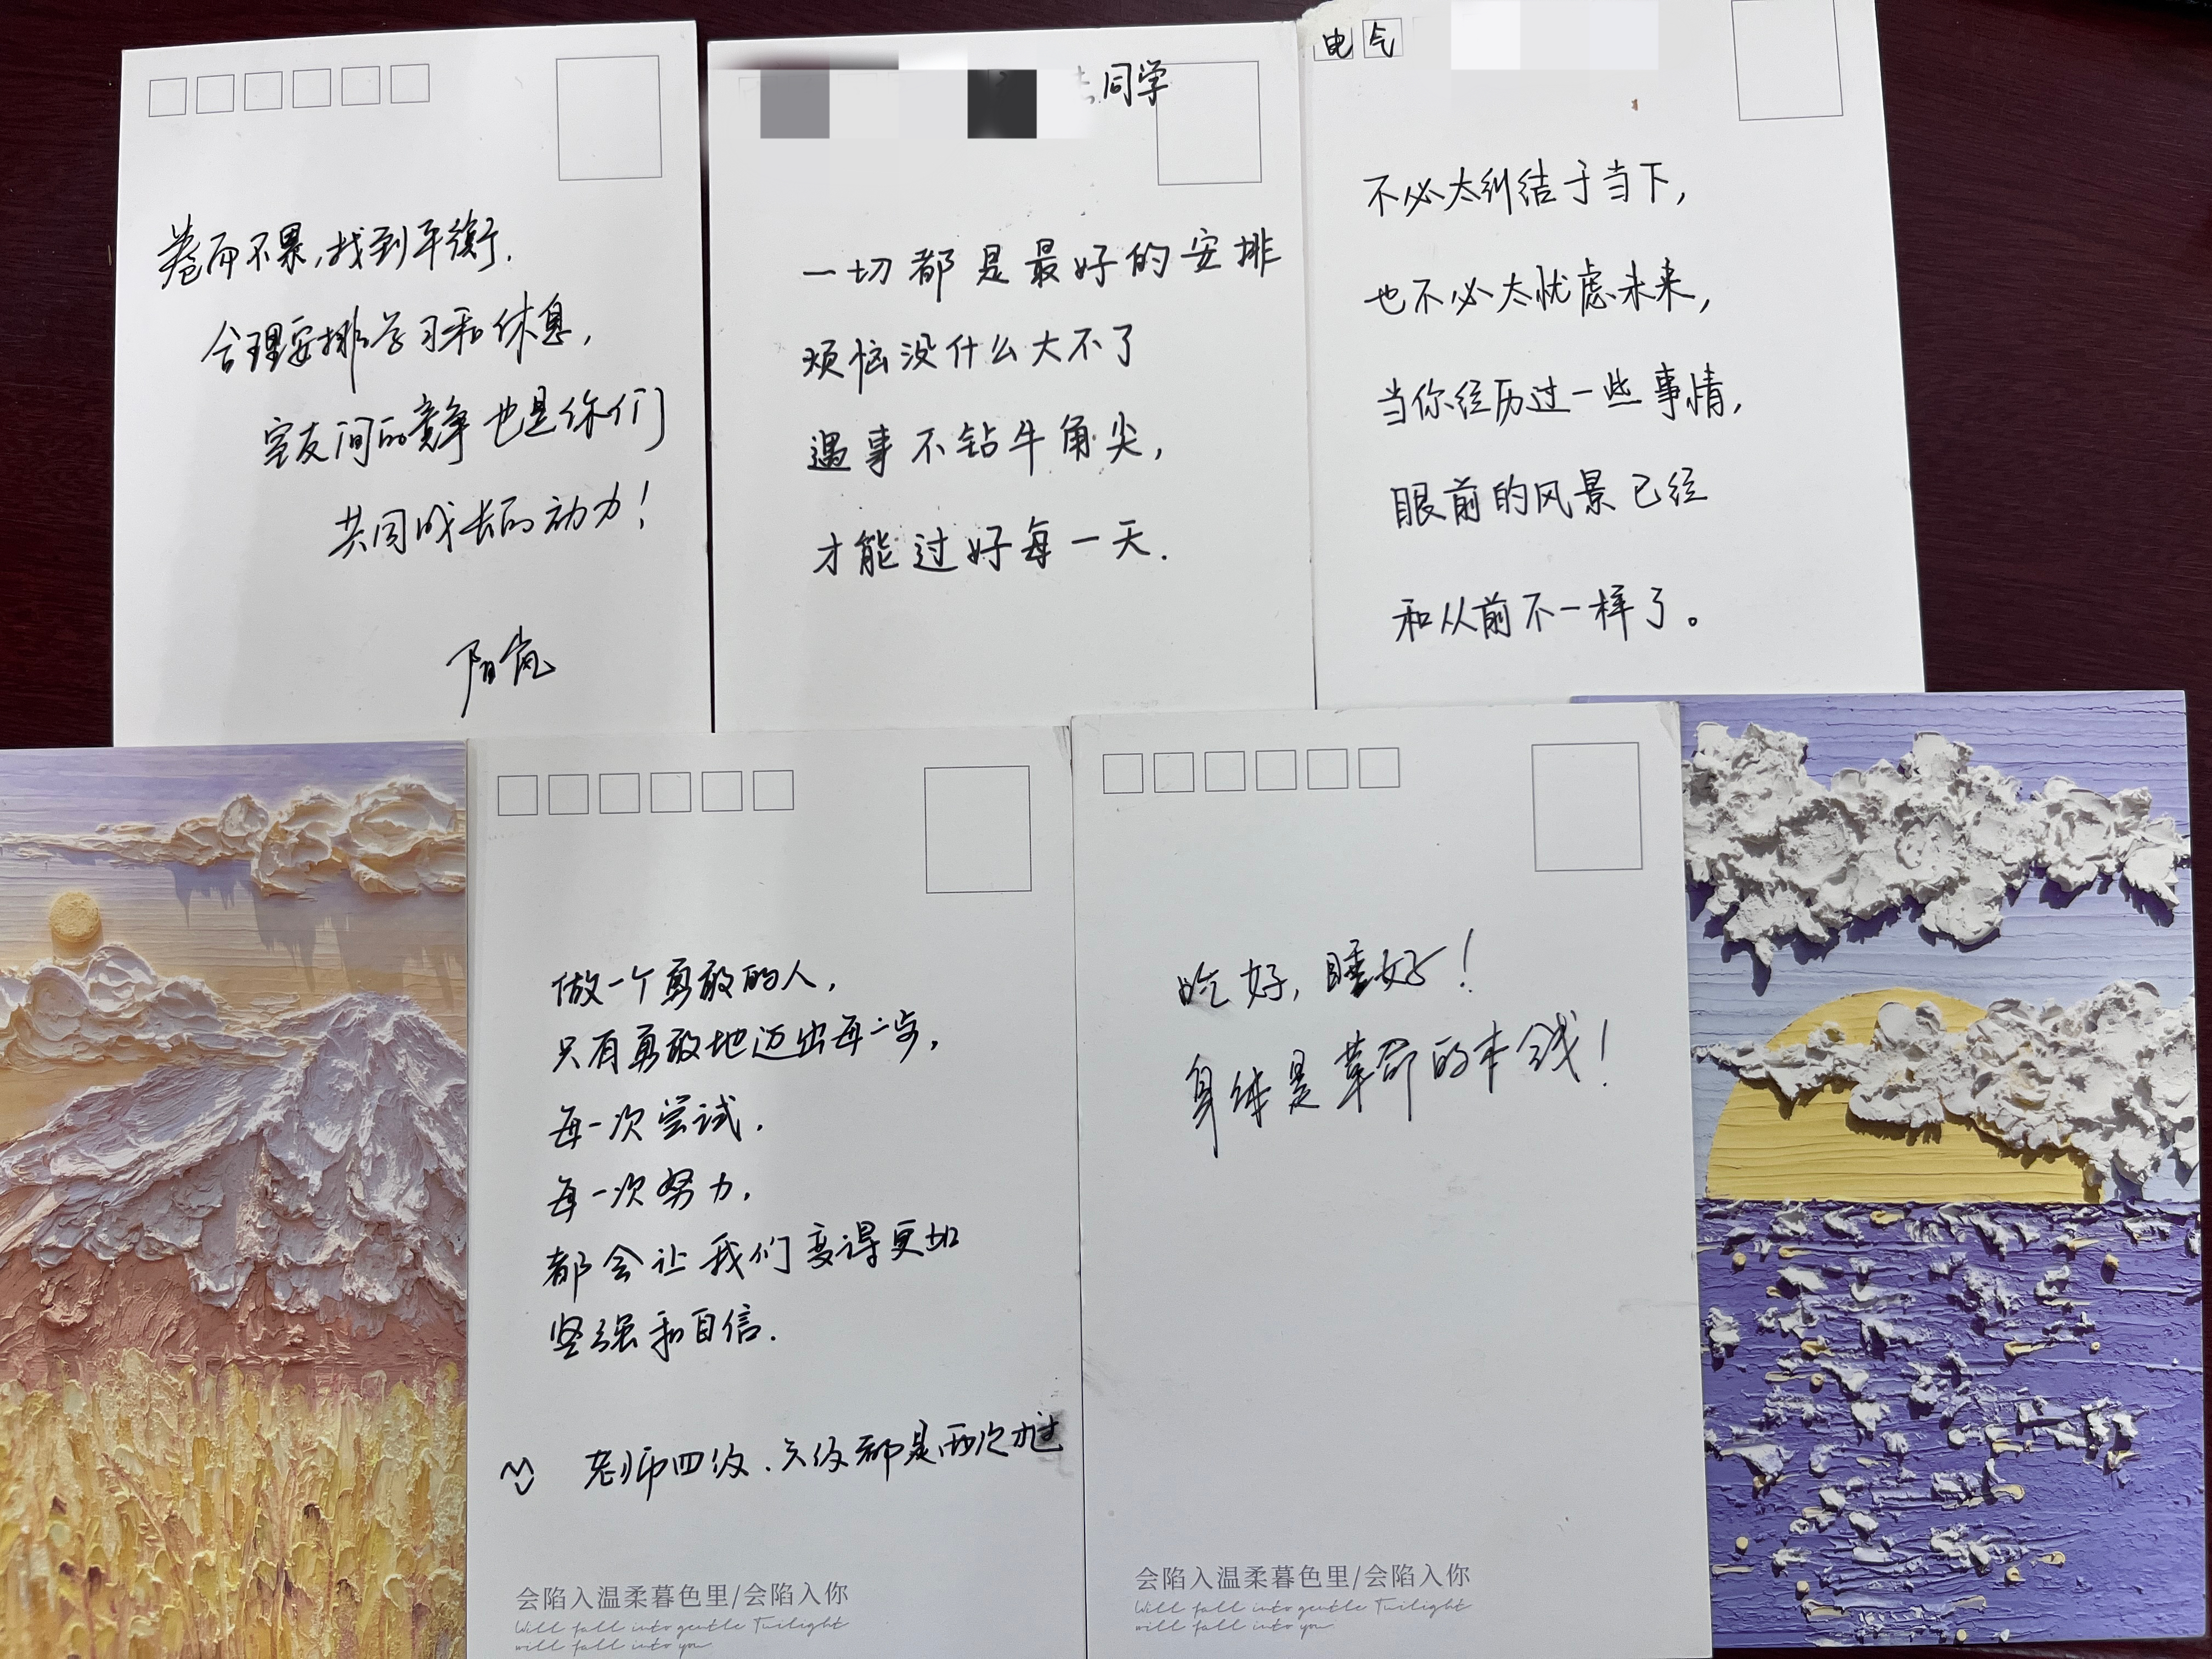 卷而不累,找到平衡.
合理安排学习和休息,
室友间的竞争也是你们
共同成长的动力!
阳岚
同学
一切都是最好的安排
烦恼没什么大不了
遇事不钻牛角尖,
才能过好每一天.
电气
不必太纠结于当下,
也不必太忧虑未来,
当你经历过一些事情,
眼前的风景已经
和从前不一样了。
做一个勇敢的人,
只有勇敢地迈出每一步,
每一次尝试,
每一次努力,
都会让我们变得更加
坚强和自信.
老师四级、六级都是两次才过
会陷入温柔暮色里/会陷入你
Will fall into gentle Twilight
will fall into you
吃好,睡好!
身体是革命的本钱!
会陷入温柔暮色里/会陷入你
Will fall into gentle Twilight
will fall into you